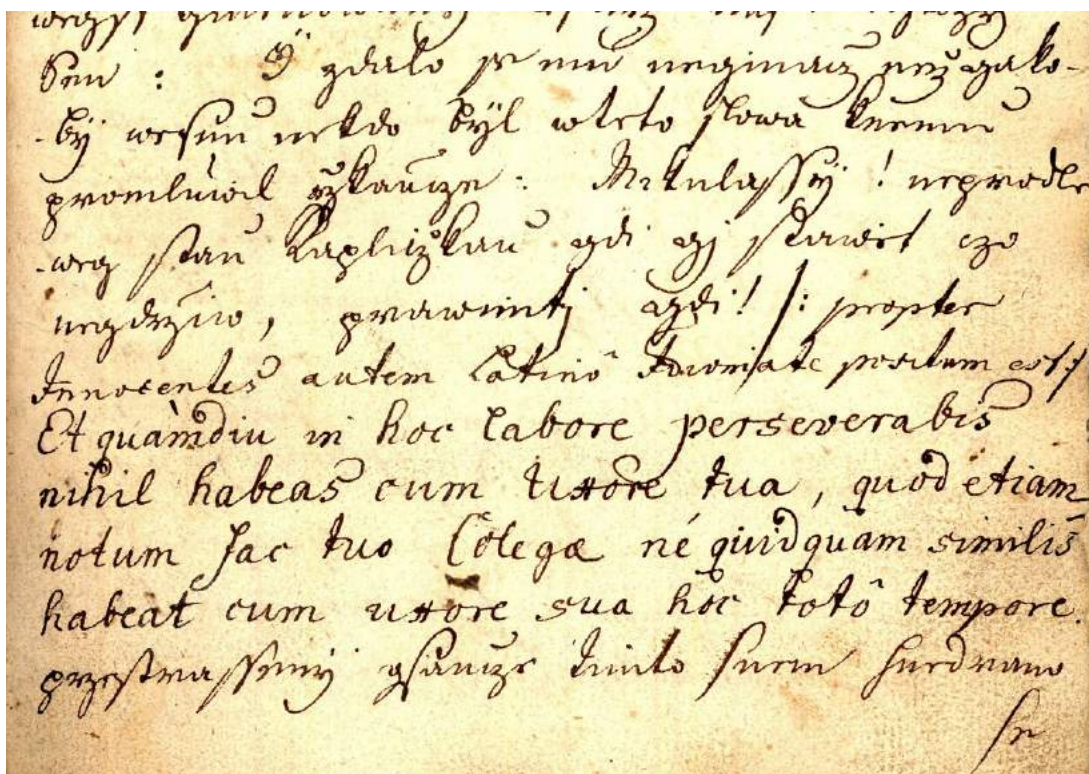 Sen : Y zdalo se mu neginacz nez gako-
-bÿ wesnu nekdo bÿl wteto slowa knemu
promluwil rzkaucze : Mikulassÿ ! neprodle
-weg staw Kapliczkau gdi gj stawet czo
negdrziw, prawimtj gdi ! /: propter
Innocentes autem Latinô Idiomate positum est :/
Et quàmdiu in hoc labore perseverabis
nihil habeas cum Uxore tua, quod etiam
notum fac tuo Colegæ né quidquam similis
habeat cum uxore sua hoc totô tempore.
przestrassenÿ gsaucze timto snem hnedrano
se